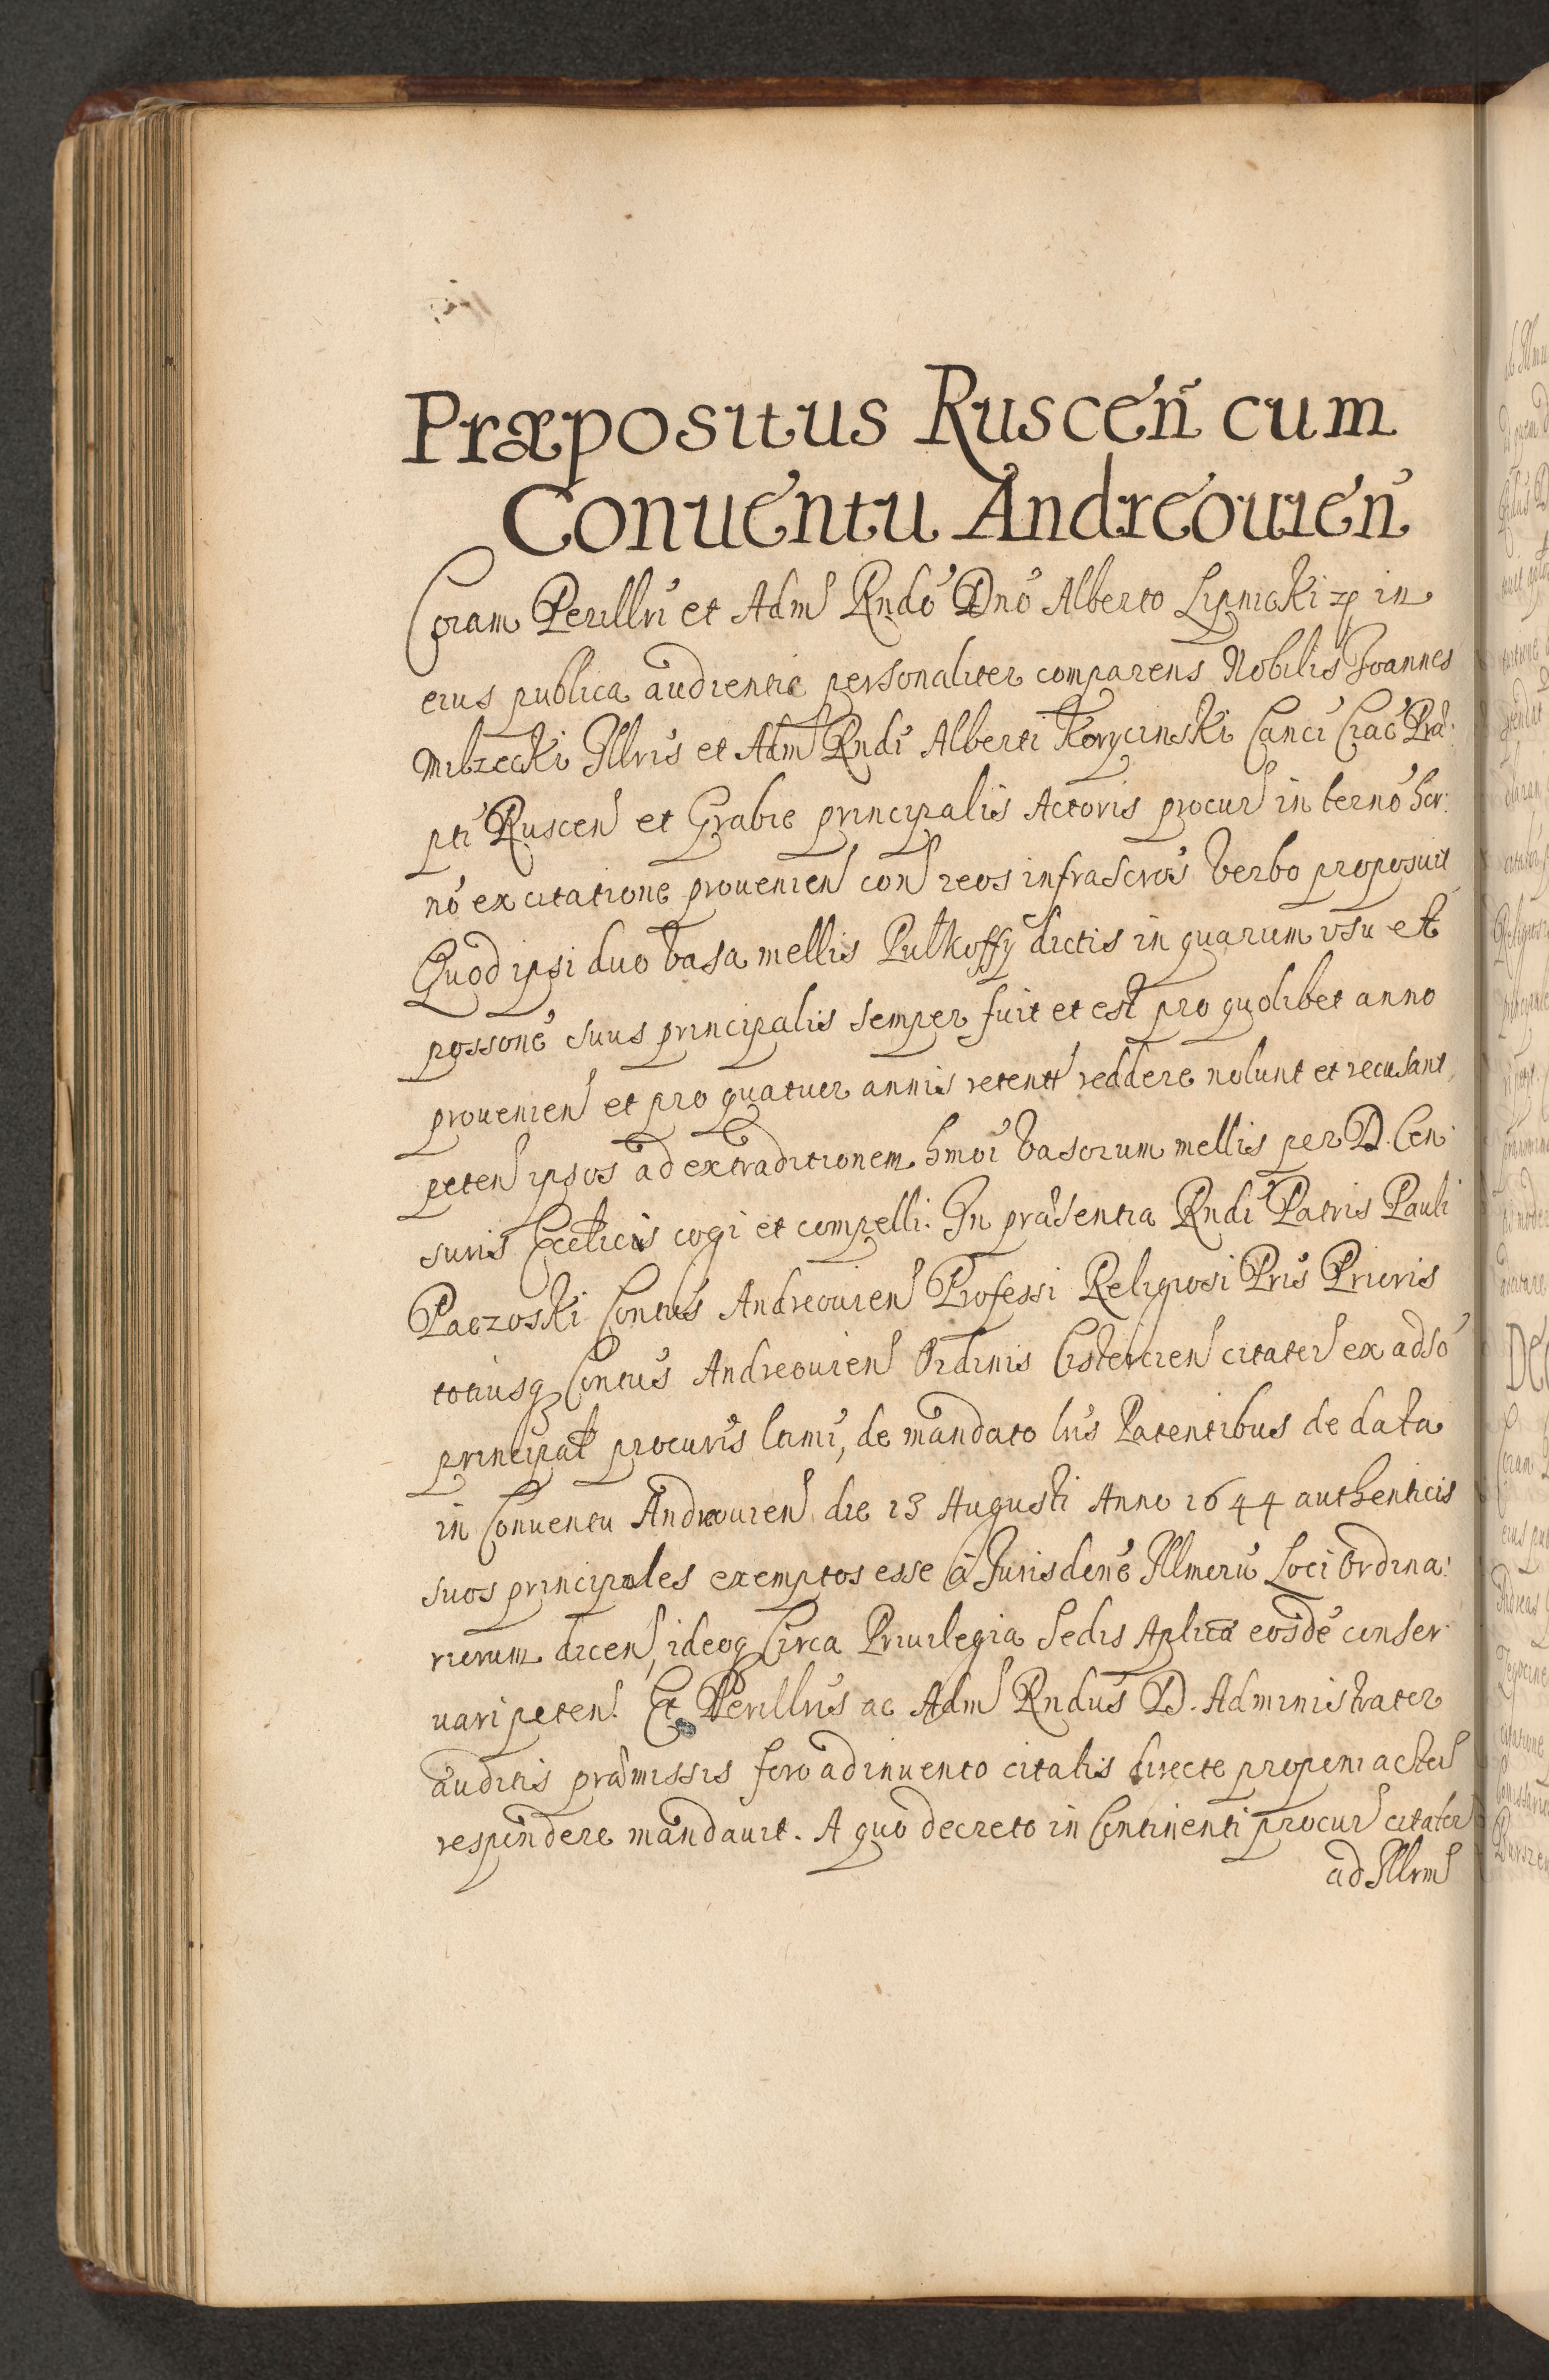 Præpositus Ruscen̄ cum
Conuentu Andreouien̄
Coram Perillri et Adm Rndo Dno Alberto Lipnicki zp in
eius publica audientie personaliter comparens Nobilis Joannes
Milzecki Illris et Adm Rndi Alberti Korycinski Canci Crac Præ:
pti Ruscen et Grabie principalis Actoris procur in terno hor:
no ex citatione prouenien con reos infrascros verbo proposuit
Quod ipsi duo vasa mellis Pułkoffy dictis in quarum vsu et
possone suus principalis semper fuit et est pro quolibet anno
prouenien et pro quatuor annis retent reddere nolunt et recusant,
peten ipsos ad extraditionem hmoi vasorum mellis per D. Cen:
suris Eccticis cogi et compelli. In præsentia Rndi Patris Pauli
Paczoski Contus Andreouien Professi Religiosi Pris Prioris
totiusq Contus Andreouien Ordinis Cistercien citator ex adso
principal procuris lami, de mandato lris Patentibus de data
in Conuentu Andreouien die 13 Augusti Anno 1644 authenticis
suos principales exemptos esse a Jurisdene Illmoru Loci Ordina:
riorum dicen, ideoq Circa Priuilegia Sedis Aplica eosde conser:
uari peten. Et Perillris ac Adm Rndus D. Administrator
auditis præmissis foro adinuento citatis directe proponi actor
respondere mandauit. A quo decreto in Continenti procur citator
ad Illrm